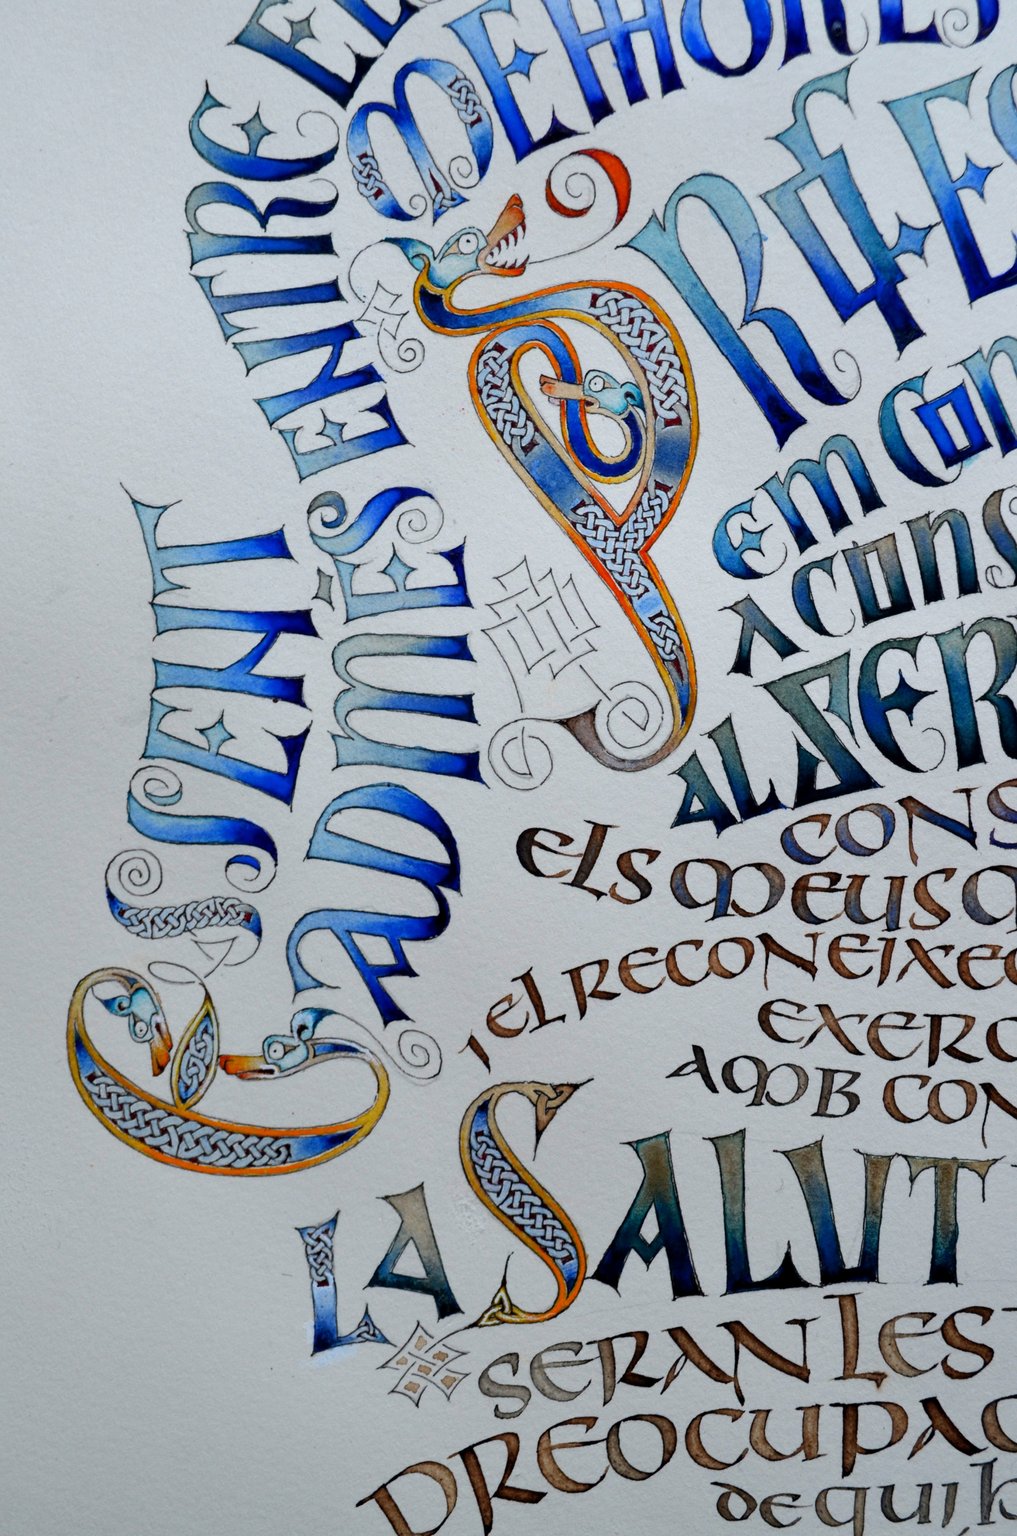 ESSENT
ADMÈS ENTRE EL
MEMBRES
PROFES
EM CON
A CONS
AL SER
CONS
ELS MEUS M
I EL RECONEIXE
EXERC
AMB CON
LA SALUT
SERAN LES
PREOCUPAC
de qui h